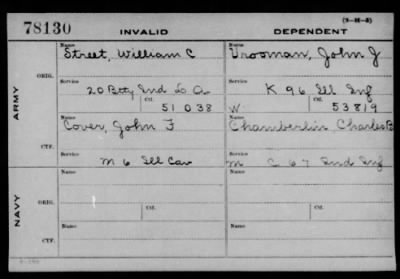 78130 INVALID DEPENDENT (3-H-5)
Name Street, William C Name Vrooman, John J
ARMY ORIG. Service 20 Btty Ind L A Service K 96 Ill Inf
Ctf. 51 038 W Ctf. 53819
Name Cover, John F Name Chamberlin Charles B
CTF. Service M 6 Ill Cav Service M C 67 Ind Inf
NAVY ORIG. Name Name
Ctf. Ctf.
CTF. Name Name